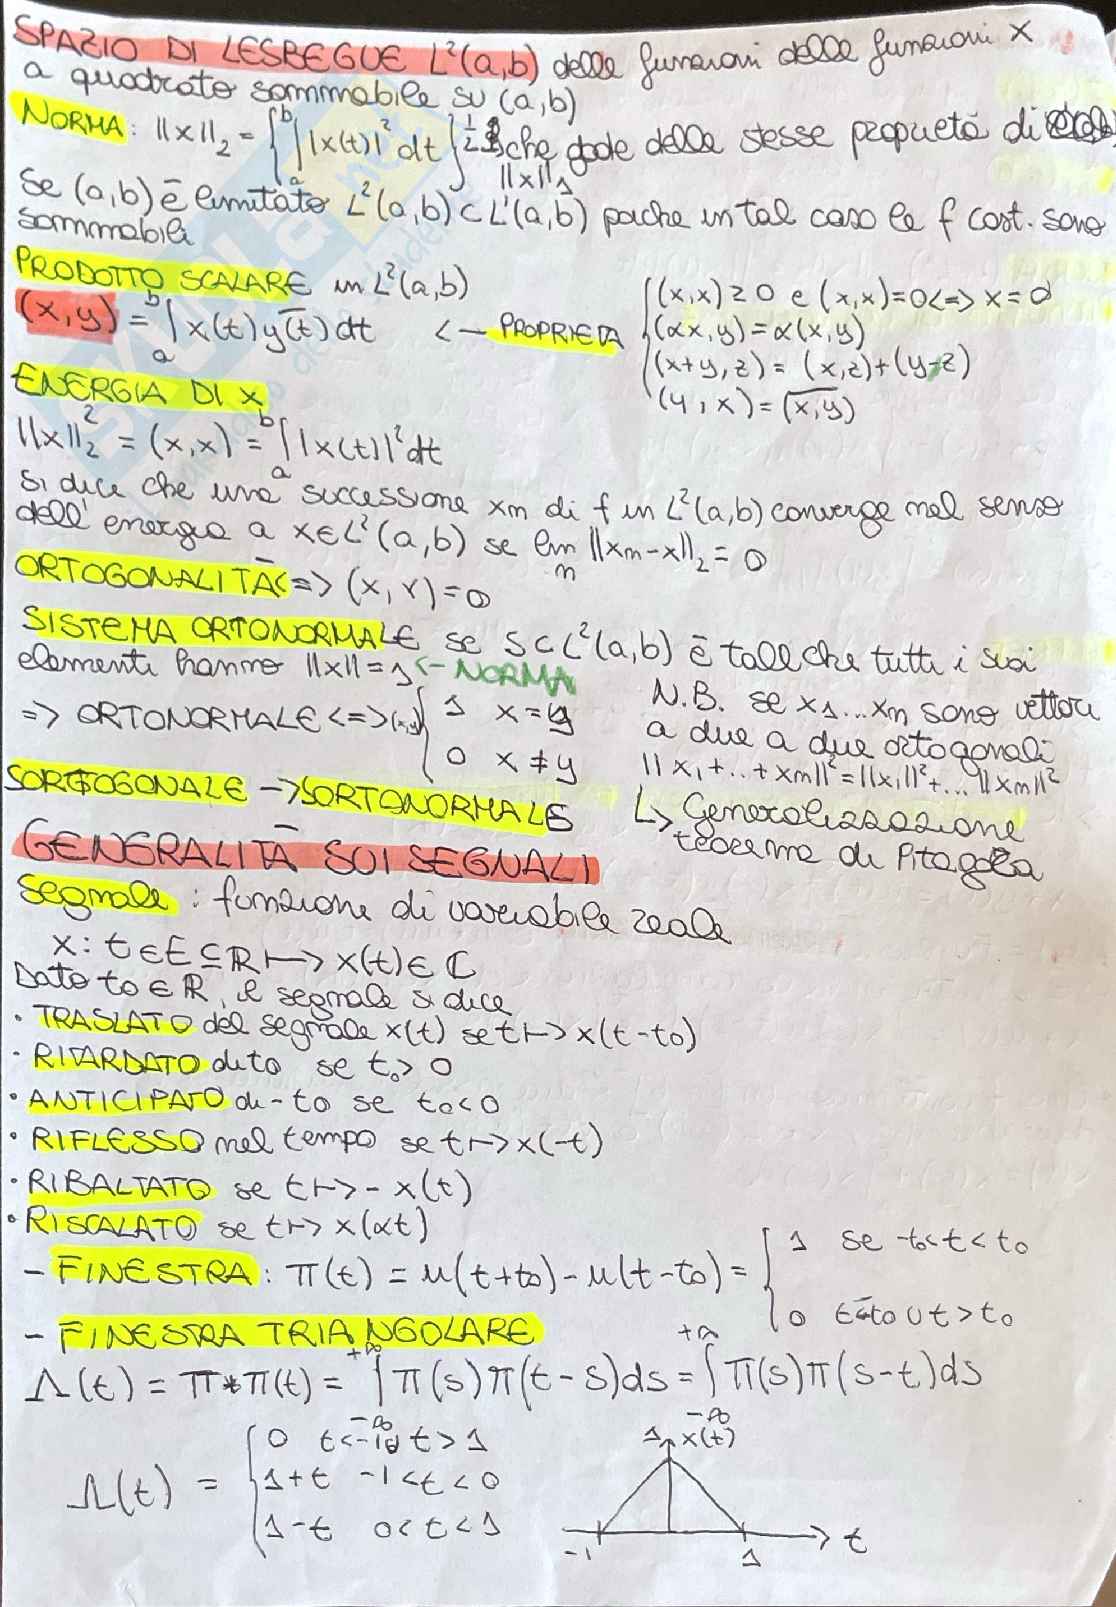 SPAZIO DI LESBEGUE L²(a,b) delle funzioni delle funzioni X
a quadrato sommabile su (a,b)
NORMA: ||x||₂ = {∫ₐᵇ |x(t)|² dt}^½ che gode delle stesse proprietà di
||x||₁
Se (a,b) è limitato L²(a,b) ⊂ L¹(a,b) poiche in tal caso le f cost. sono
sommabili
PRODOTTO SCALARE in L²(a,b)
(x,y) = ∫ₐᵇ x(t) y(t)̅ dt <— PROPRIETÀ
(x,x) ≥ 0 e (x,x)=0 <=> x=0
(αx,y) = α(x,y)
(x+y,z) = (x,z)+(y,z)
(y,x) = (x,y)̅
ENERGIA DI X
||x||₂² = (x,x) = ∫ₐᵇ |x(t)|² dt
Si dice che una successione xn di f in L²(a,b) converge nel senso
dell'energia a x∈L²(a,b) se lim n ||xn-x||₂ = 0
ORTOGONALITÀ <=> (x,y)=0
SISTEMA ORTONORMALE se S⊂L²(a,b) è tale che tutti i suoi
elementi hanno ||x||=1 <- NORMA
=> ORTONORMALE <=> (x,y) { 1 x=y
0 x≠y
N.B. se x1...xn sono vettori
a due a due ortogonali
||x₁+..+xn||²=||x₁||²+...||xn||²
↳ Generalizzazione
teorema di Pitagora
SORTOGONALE -> SORTONORMALE
GENERALITÀ SUI SEGNALI
Segnale: funzione di variabile reale
x: t∈E⊆ℝ ↦ x(t)∈ℂ
Dato t0∈ℝ, il segnale si dice
· TRASLATO del segnale x(t) se t↦x(t-t0)
· RITARDATO di t0 se t0>0
· ANTICIPATO di -t0 se t0<0
· RIFLESSO nel tempo se t↦x(-t)
· RIBALTATO se t↦-x(t)
· RISCALATO se t↦x(αt)
- FINESTRA: π(t) = u(t+t0)-u(t-t0) = { 1 se -t0<t<t0
0 t<-t0 ∪ t>t0
- FINESTRA TRIANGOLARE
Λ(t) = π*π(t) = ∫₋∞⁺∞ π(s)π(t-s)ds = ∫₋∞⁺∞ π(s)π(s-t)ds
Λ(t) = { 0 t<-1 ∪ t>1
1+t -1<t<0
1-t 0<t<1
1 x(t)
-1 1 t